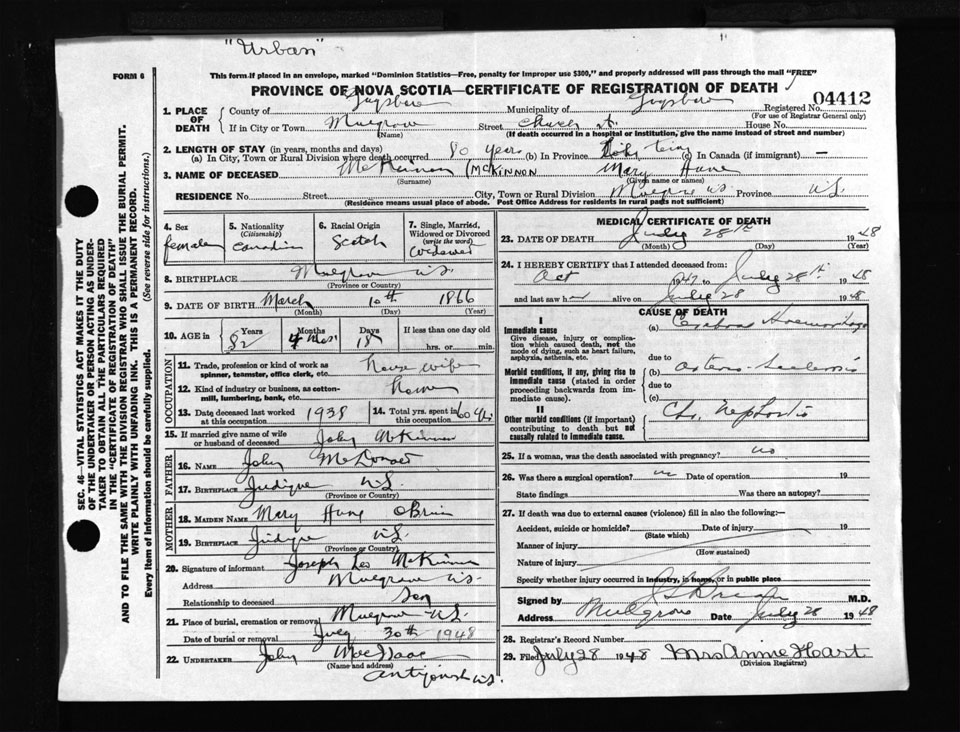 "Urban"
FORM 6
This form if placed in an envelope, marked "Dominion Statistics—Free, penalty for improper use $300," and properly addressed will pass through the mail "FREE"
PROVINCE OF NOVA SCOTIA—CERTIFICATE OF REGISTRATION OF DEATH
04412
1. PLACE OF DEATH
County of Guysboro Municipality of Guysboro Registered No.
(For use of Registrar General only)
If in City or Town Mulgrave Street Church St. House No.
(Name) (If death occurred in a hospital or institution, give the name instead of street and number)
2. LENGTH OF STAY (in years, months and days)
(a) In City, Town or Rural Division where death occurred 80 years (b) In Province (c) In Canada (if immigrant) —
3. NAME OF DECEASED McKinnon (McKINNON Mary Jane
(Surname) (Given name or names)
RESIDENCE No. Street City, Town or Rural Division Mulgrave N.S. Province N.S.
(Residence means usual place of abode. Post Office Address for residents in rural parts not sufficient)
4. Sex female
5. Nationality (Citizenship) Canadian
6. Racial Origin Scotch
7. Single, Married, Widowed or Divorced (write the word) Widowed
8. BIRTHPLACE Mulgrave N.S.
(Province or Country)
9. DATE OF BIRTH March 10th 1866
(Month) (Day) (Year)
10. AGE in 82 Years 4 Months mos 18 Days If less than one day old
hrs. or min.
OCCUPATION
11. Trade, profession or kind of work as spinner, teamster, office clerk, etc. House wife
12. Kind of industry or business, as cotton-mill, lumbering, bank, etc. Home
13. Date deceased last worked at this occupation 1938
14. Total yrs. spent in this occupation 60 yrs
15. If married give name of wife or husband of deceased John McKinnon
FATHER
16. NAME John McDonald
17. BIRTHPLACE Judique N.S.
(Province or Country)
MOTHER
18. MAIDEN NAME Mary Jane O'Brien
19. BIRTHPLACE Judique N.S.
(Province or Country)
20. Signature of informant Joseph Leo McKinnon
Address Mulgrave N.S.
Relationship to deceased Son
21. Place of burial, cremation or removal Mulgrave N.S.
Date of burial or removal July 30th 1948
22. UNDERTAKER John MacIsaac
(Name and address)
Antigonish N.S.
MEDICAL CERTIFICATE OF DEATH
23. DATE OF DEATH July 28th 1948
(Month) (Day) (Year)
24. I HEREBY CERTIFY that I attended deceased from:
Oct 1947 to July 28th 1948
and last saw her alive on July 28 1948
CAUSE OF DEATH
I
Immediate cause
Give disease, injury or complication which caused death, not the mode of dying, such as heart failure, asphyxia, asthenia, etc.
(a) Cerebral Haemorrhage
due to
Morbid conditions, if any, giving rise to immediate cause (stated in order proceeding backwards from immediate cause).
(b) Arterio-Sclerosis
due to
(c)
II
Other morbid conditions (if important) contributing to death but not causally related to immediate cause.
Chr. Nephritis
25. If a woman, was the death associated with pregnancy? no
26. Was there a surgical operation? no Date of operation 19
State findings Was there an autopsy?
27. If death was due to external causes (violence) fill in also the following:—
Accident, suicide or homicide? Date of injury 19
(State which)
Manner of injury
(How sustained)
Nature of injury
Specify whether injury occurred in industry, in home, or in public place
Signed by M.D.
Address Mulgrave Date July 28 1948
28. Registrar's Record Number
29. Filed July 28 1948 Mrs Annie Hart
(Division Registrar)
SEC. 46—VITAL STATISTICS ACT MAKES IT THE DUTY
OF THE UNDERTAKER OR PERSON ACTING AS UNDER-
TAKER TO OBTAIN ALL THE PARTICULARS REQUIRED
IN THE "CERTIFICATE OF REGISTRATION OF DEATH"
AND TO FILE THE SAME WITH THE DIVISION REGISTRAR WHO SHALL ISSUE THE BURIAL PERMIT.
WRITE PLAINLY WITH UNFADING INK. THIS IS A PERMANENT RECORD.
Every item of information should be carefully supplied. (See reverse side for instructions.)